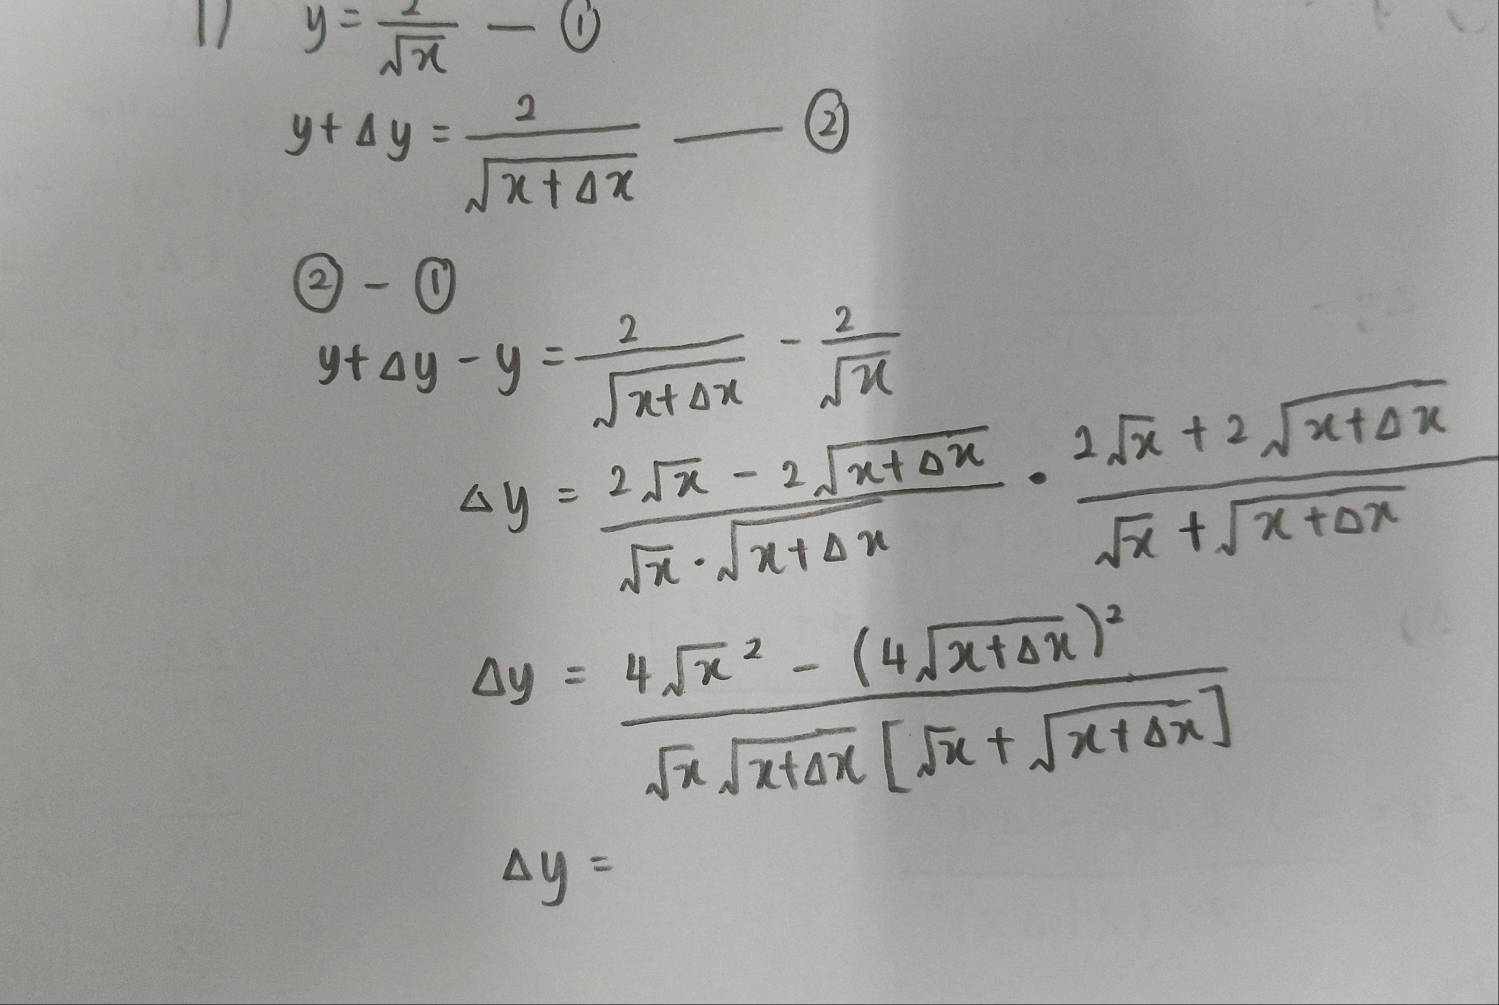 1) y = 2/√x — ①
y + Δy = 2/√(x+Δx) — ②
② - ①
y + Δy - y = 2/√(x+Δx) - 2/√x
Δy = (2√x - 2√(x+Δx))/(√x · √(x+Δx)) · (2√x + 2√(x+Δx))/(√x + √(x+Δx))
Δy = (4√x² - (4√(x+Δx))²)/(√x √(x+Δx) [√x + √(x+Δx)])
Δy =